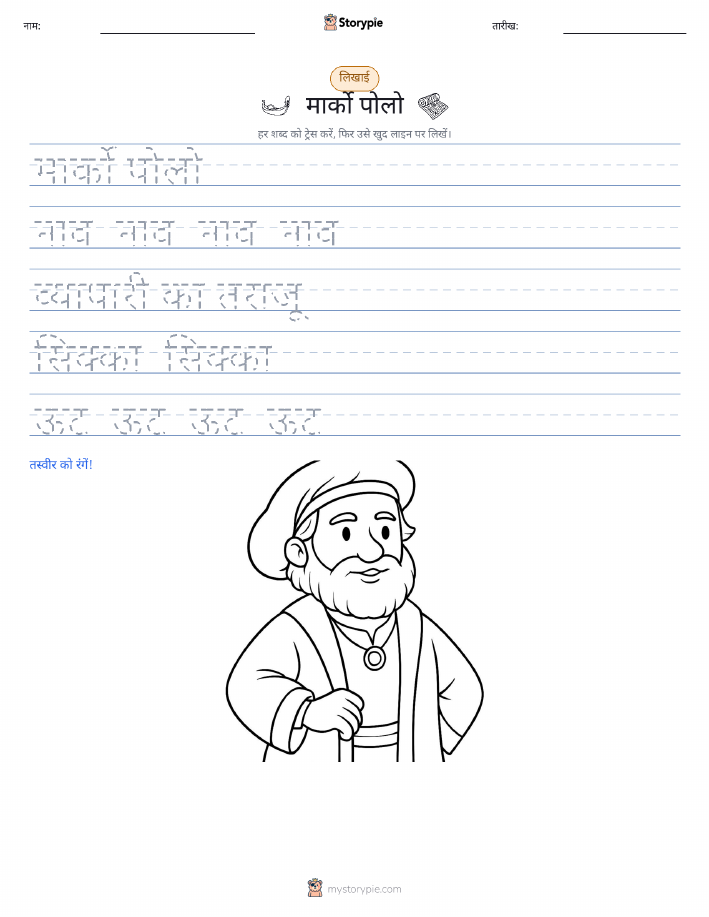 नाम: Storypie तारीख:
लिखाई
मार्को पोलो
हर शब्द को ट्रेस करें, फिर उसे खुद लाइन पर लिखें।
मार्को पोलो
नाव नाव नाव नाव
व्यापारी का तराजू
सिक्का सिक्का
ऊट ऊट ऊट ऊट
तस्वीर को रंगें!
mystorypie.com